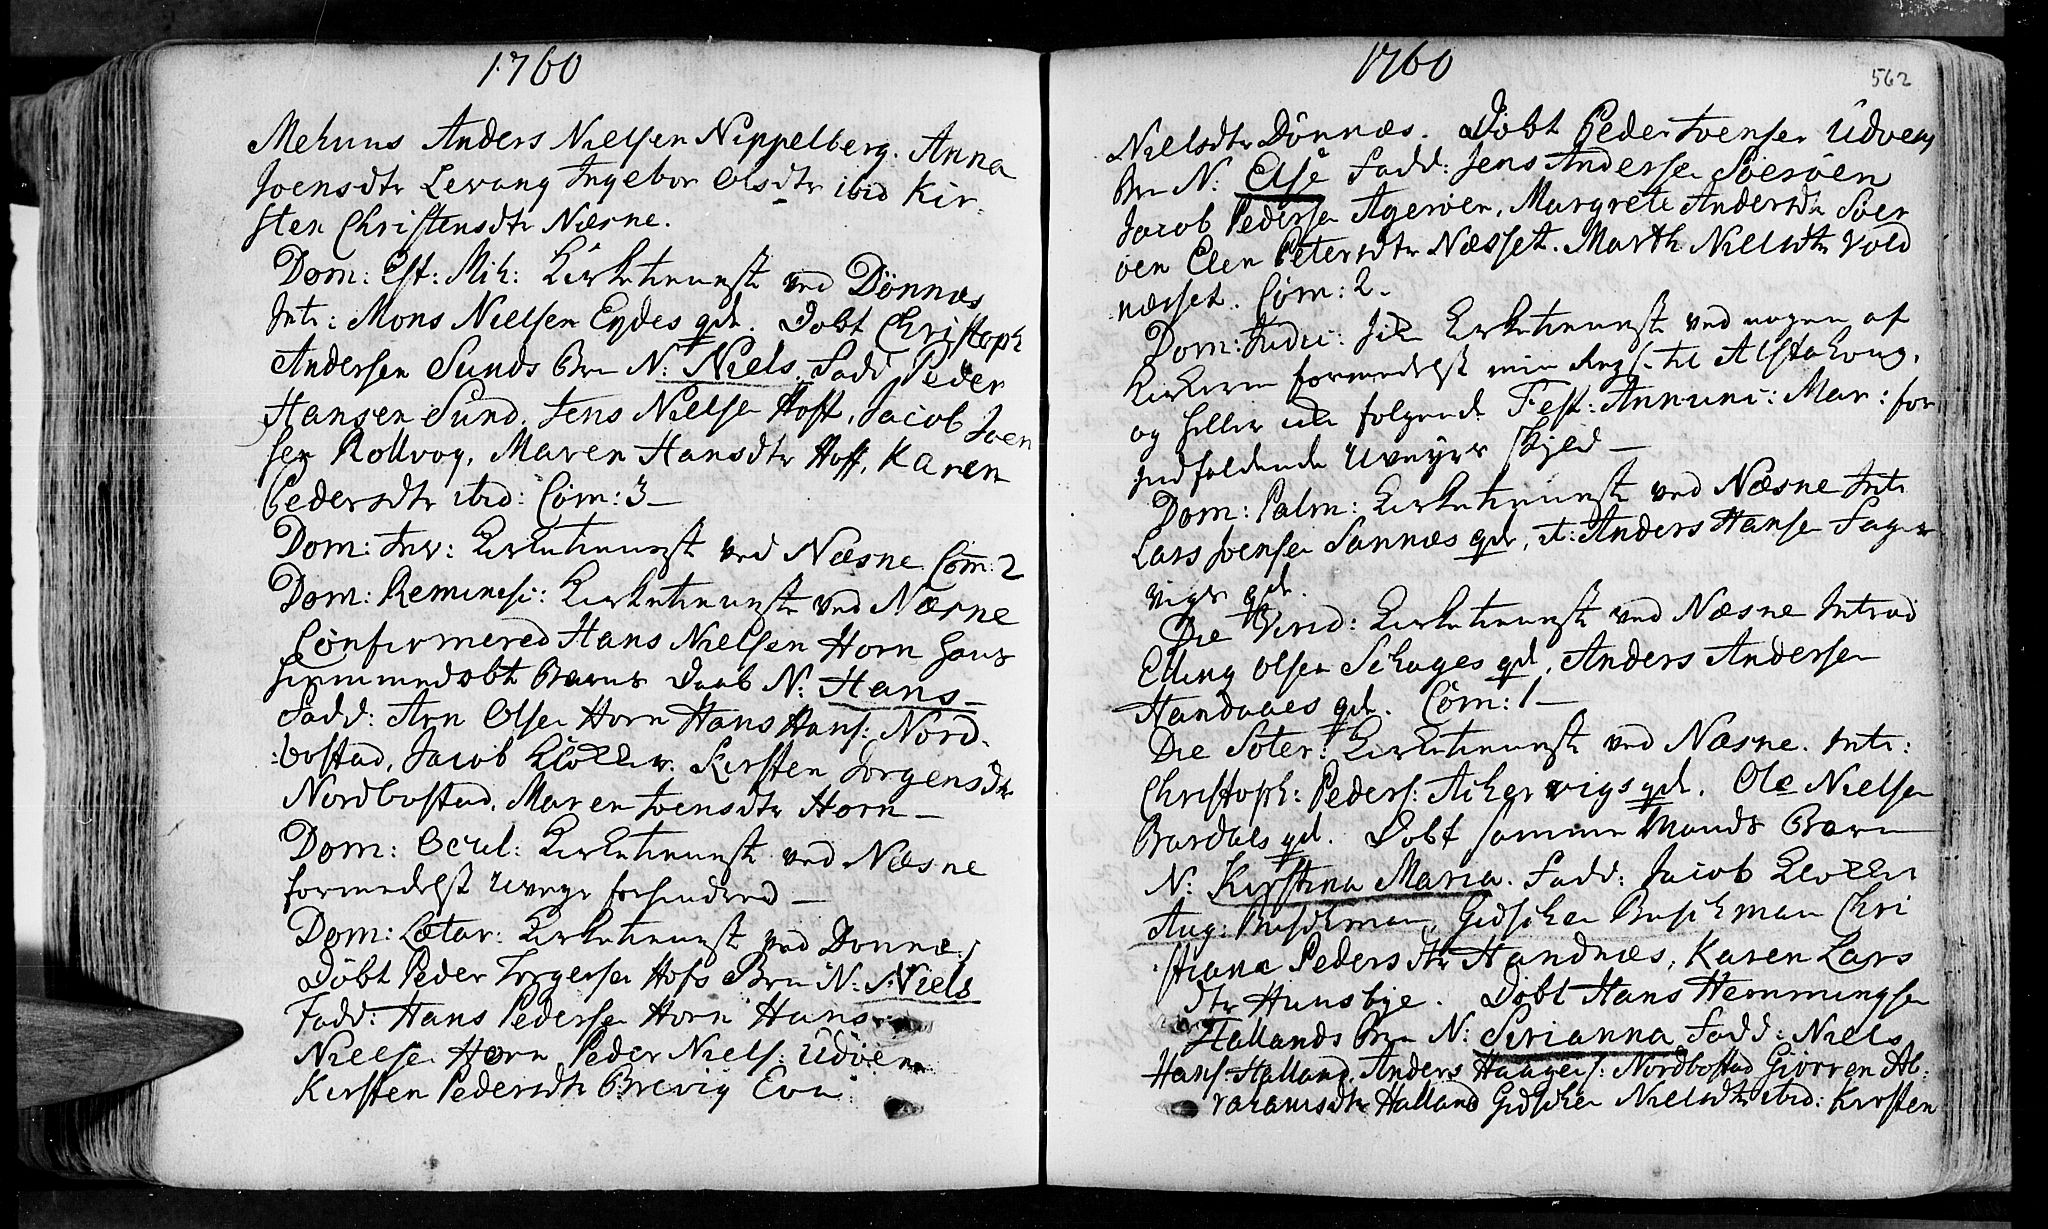 1760
Mehuus Anders Nielsen Nippelberg. Anna
Joensdtr Levang Ingebor Olsdtr ibid Kir-
sten Christensdtr Næsne.
Dom: Est: Mih: Kirketieneste ved Dönnes
Intr: Mons Nielsen Eydes qd. Döbt Christoph
Andersen Sunds Brn N: Niels. Fadd Peder
Hansen Sund, Jens Nielsen Hoff, Jacob Joen
sen Rollvog, Maren Hansdtr Hoff, Karen
Pedersdtr ibid: Com: 3—
Dom: Inv: Kirketieneste ved Næsne Com: 2
Dom: Reminesi: Kirketieneste ved Næsne
Confirmered Hans Nielsen Horn hans
hiemmedöbt Barns Daab N: Hans—
Fadd: Arn Olsen Horn Hans Hans: Nord-
:bostad, Jacob Kirsten Jorgensdtr
Nordbostad, Maren Joensdtr Horn—
Dom: Ocul: Kirketieneste ved Næsne
formedelst Uveyr forhindred—
Dom: Lætar: Kirketieneste ved Donnæs
Döbt Peder Jorgensen Hofs Brn N: Niels
Fadd: Hans Pedersen Horn Hans
Nielsen Horn Peder Niels: Udöen
Kirsten Pedersdtr Brevig
1760
562
Nielsdtr Dönnæs. Döbt Peder Ivensen Udöens
Brn N: Else Fadd: Jens Andersen Söeröen
Jacob Pedersen Ageröen, Margrete Andersdtr Söer
öen Elen Petersdtr Næsset. Marth Nielsdtr Vold
næsset. Com: 2-
Dom: Judic: Kirketieneste ved nogen af
Kirkerne formedelst min Reyse til Alstahoug,
og heller paafolgende Fest: Annunc: Mar: for
indfaldende Uveyrs skyld—
Dom: Palm: Kirketieneste ved Næsne Intr
Lars Joensen Sannæs qd, it: Anders Hansen Fager
vigs qd.
Die Virid: Kirketieneste ved Næsne Introd
Elling Olsen Schages qd, Anders Andersen
Handnæs qd. Com: 1—
Die Soter: Kirketieneste ved Næsne. Intr:
Christoph: Peders: Achervigs qd. Ole Nielsen
Bardals qd. Döbt samme Mands Barn
N: Kirstina Maria. Fadd: Jacob
Aug: Buschman, Gidschen Buschman Chri
stiane Pedersdtr Handnæs, Karen Lars
dtr Huusbye. Döbt Hans Hemmingsen
Hallands Brn N: Sirianna Fadd: Niels
Hans: Halland, Anders Haagens: Nordbostad Giorren Ab-
rahamsdtr Halland Gidschen Nielsdtr ibid: Kirsten